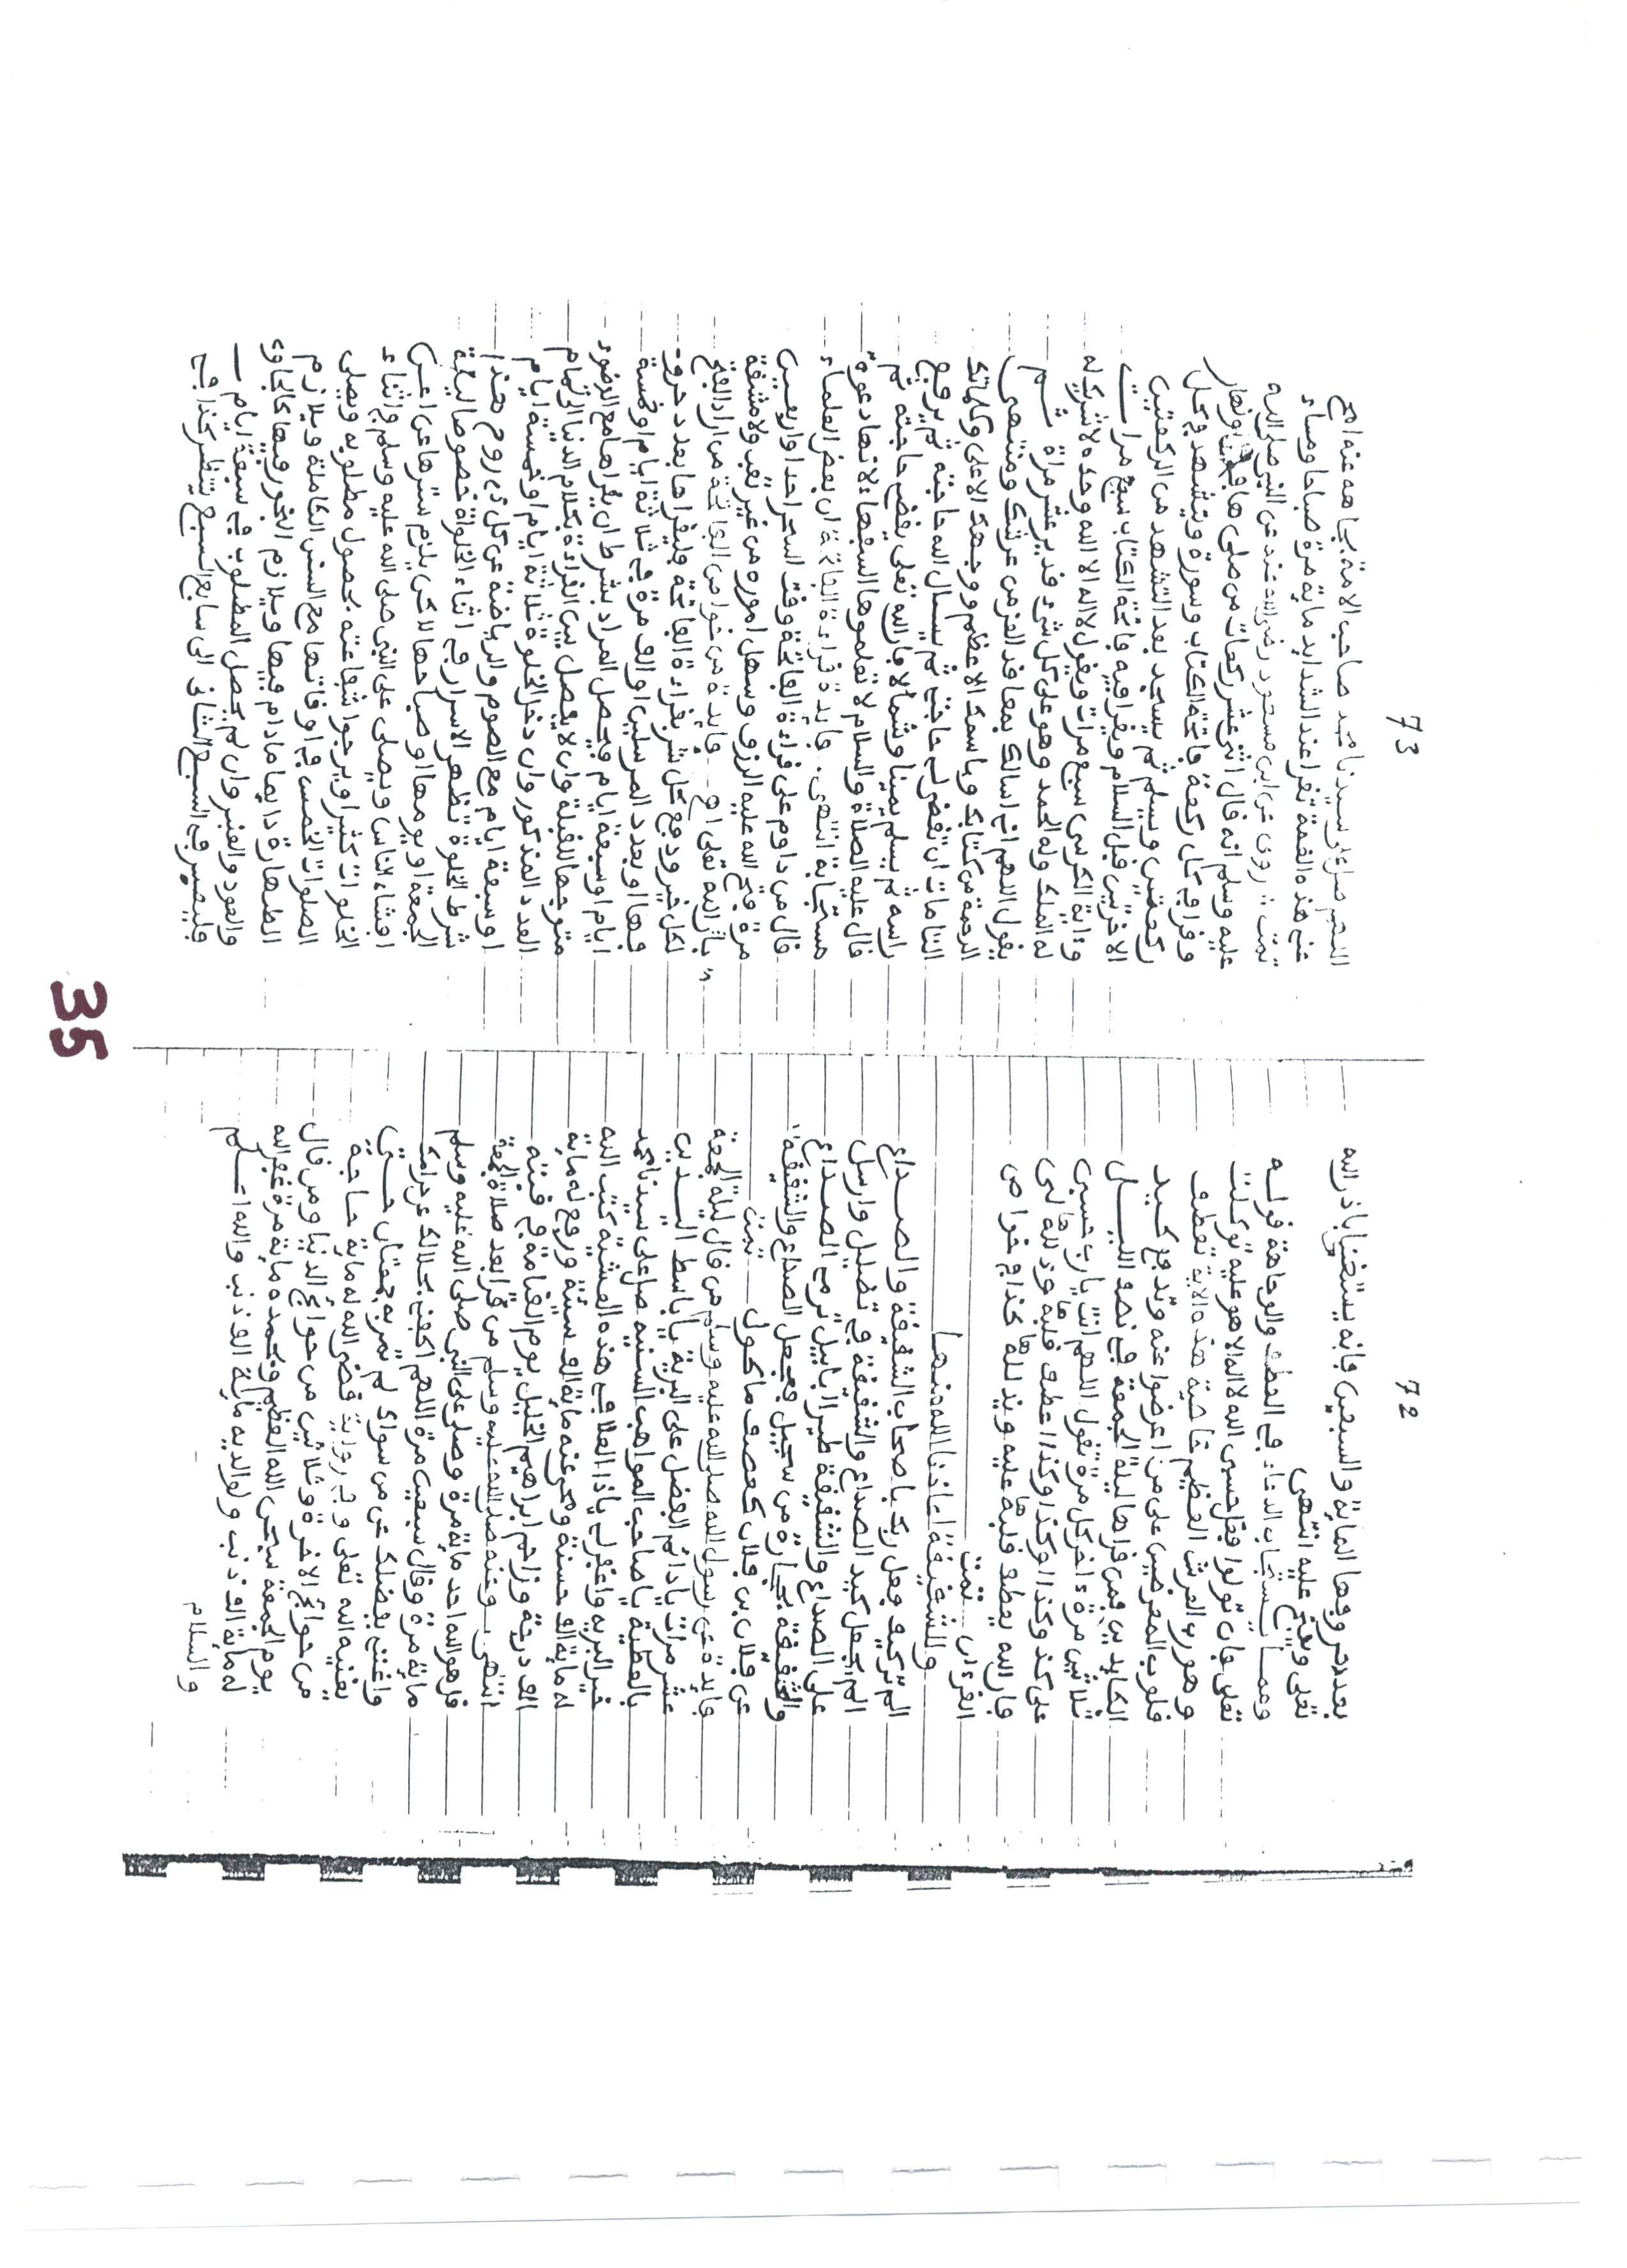 72
بعد حروفها الماية والسبعين فإنه يستغنى بإذن الله
تعلى ويفتح عليه انتهى
ومما يستجاب الدعاء في العطف والوجاهة قوله
تعلى فإن تولوا فقل حسبي الله لا إله إلا هو عليه توكلت
وهو رب العرش العظيم خاصية هذه الآية تعطف
قلوب المعرضين على من اعرضوا عنه وتدفع كيد
الكايدين فمن قراها ليلة الجمعة في نصف الليل
ثلاثين مرة اخر كل مرة تقول اللهم انت يا رب حسبي
على كذا وكذا وكذا وكذا اعطف قلبه وذلله لي
فإن الله يعطف قلبه عليه ويذلله كذا في خواص
القرءان تمت
والشقيقة اعاذنا الله منها
الم تر كيف فعل ربك باصحاب الشقيقة والصداع
الم يجعل كيد الصداع والشقيقة في تضليل وارسل
على الصداع والشقيقة طيرا ابابيل ترمي الصداع
والشقيقة بحجارة من سجيل فجعل الصداع والشقيقة
عن فلان بن فلان كعصف ماكول تمت
فايدة عن رسول الله صلى الله عليه وسلم من قال ليلة الجمعة
عشر مرات يا دائم الفضل على البرية يا باسط اليدين
بالعطية يا صاحب المواهب السنية صل على سيدنا محمد
خير البرية واغفر لي ياذا العلا في هذه العشية كتب الله
له ماية الف حسنة ومحى عنه ماية الف سيئة ورفع له ماية
الف درجة وزاحم ابراهيم الخليل يوم القيامة في قبته
انتهى وعنه صلى الله عليه وسلم من قرا بعد صلاة الجمعة
قل هو الله احد ماية مرة وصلى على النبي صلى الله عليه وسلم
ماية مرة وقال سبعين مرة اللهم اكفني بحلالك عن حرامك
واغنني بفضلك عن من سواك لم تمر به جمعتان حتى
يغنيه الله تعلى وفي رواية قضى الله له ماية حاجة
من حوائج الاخرة وثلاثين من حوائج الدنيا ومن قال
يوم الجمعة سبحن الله العظيم وبحمده ماية مرة غفر الله
له ماية الف ذنب ولوالديه ماية الف ذنب والله اعلم
والسلام
73
اللهم صل على سيدنا محمد صاحب الامة بجاهه عنه افرج
عني هذه الغمة تقرا عند الشدايد ماية مرة صباحا ومساء
تمت روى عن ابن مسعود رضي الله عنه عن النبي صلى الله
عليه وسلم انه قال اثنى عشر ركعات من صلى ها في ليل او نهار
وقرا في كل ركعة فاتحة الكتاب وسورة ويتشهد في كل
ركعتين ويسلم ثم يسجد بعد التشهد من الركعتين
الاخرتين قبل السلام ويقرا فيه فاتحة الكتاب سبع مرات
وءاية الكرسي سبع مرات ويقول لا اله الا الله وحده لا شريك له
له الملك وله الحمد وهو على كل شيء قدير عشر مرات ثم
يقول اللهم اني اسالك بمعاقد العز من عرشك ومنتهى
الرحمة من كتابك وباسمك الاعظم ووجهك الاعلى وكلماتك
التامات ان تقضي لي حاجتي ثم يسال الله حاجته ثم يرفع
راسه ثم يسلم يمينا وشمالا فإن الله تعلى يقضي حاجته ثم
قال عليه الصلاة والسلام لا تعلموها السفهاء لانها دعوة
مستجابة انتهى فايدة قراءة الفاتحة ان بعض العلماء
قال من داوم على قراءة الفاتحة وقت السحر احدا واربعين
مرة فتح الله عليه الرزق وسهل اموره من غير تعب ولا مشقة
بإذن الله تعلى اهـ فايدة من خواص الفاتحة من اراد الفتح
لكل خير ودفع كل شر بقراءة الفاتحة فليقراها بعدد حروف
فها او بعدد المرسلين او الف مرة في ثلاثة ايام او خمسة
ايام او سبعة ايام فيحصل المراد بشرط ان يقراها مع الوضوء
متوجها للقبلة وان لا يفصل بين القراءة بكلام الدنيا الى تمام
العدد المذكور وان دخل الخلوة ثلاثة ايام او خمسة ايام
او سبعة ايام مع الصوم والرياضة عن كل ذي روح هذا
شرط الخلوة تظهر الاسرار في اثناء الخلوة خصوصا ليلة
الجمعة او يومها او صباحها لاكن يلزم سترها عن اعين
افشاء الناس ويصلي على النبي صلى الله عليه وسلم في اثناء
الخلوات كثيرا ويرجوا شفاعته بحصول مطلوبه ويصلي
الصلوات الخمس في اوقاتها مع السنن الكاملة ويلازم
الطهارة دايما مادام فيها ويلازم البخور فيها كالجاوي
والعود والعنبر وان لم يحصل المطلوب في سبعة ايام
فليصبر في السبع الثاني الى سابع السبع ينتظر كذا في
35